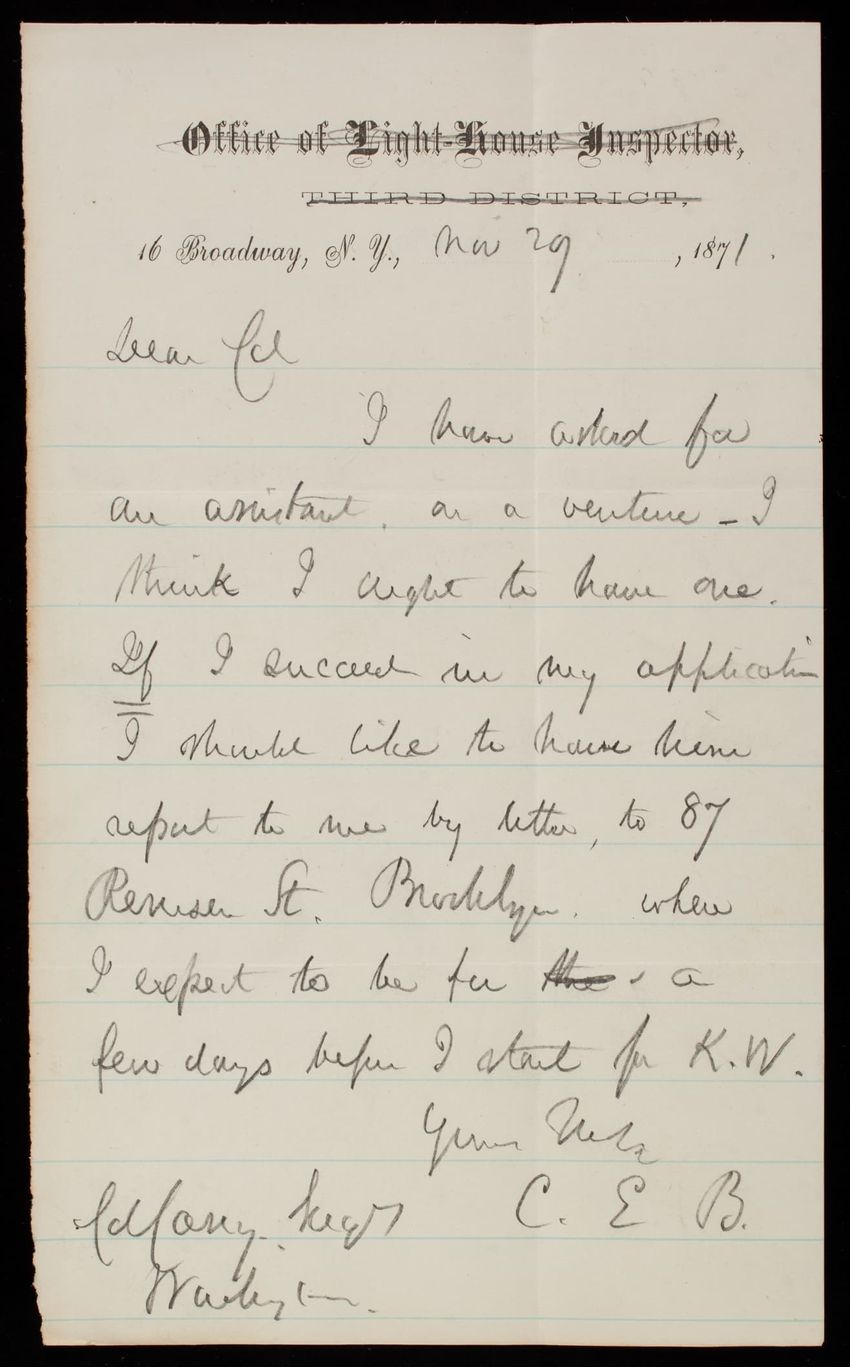 Office of Light-House Inspector,
THIRD DISTRICT,
16 Broadway, N. Y., Nov 29, 1871.
Dear Col
I have asked for
an assistant, on a venture - I
think I ought to have one.
If I succeed in my application
I should like to have him
report to me by letter, to 87
Remsen St. Brooklyn. where
I expect to be for the a
few days before I start for K.W.
Yours
C. E. B.
Col Casey.
Washington.